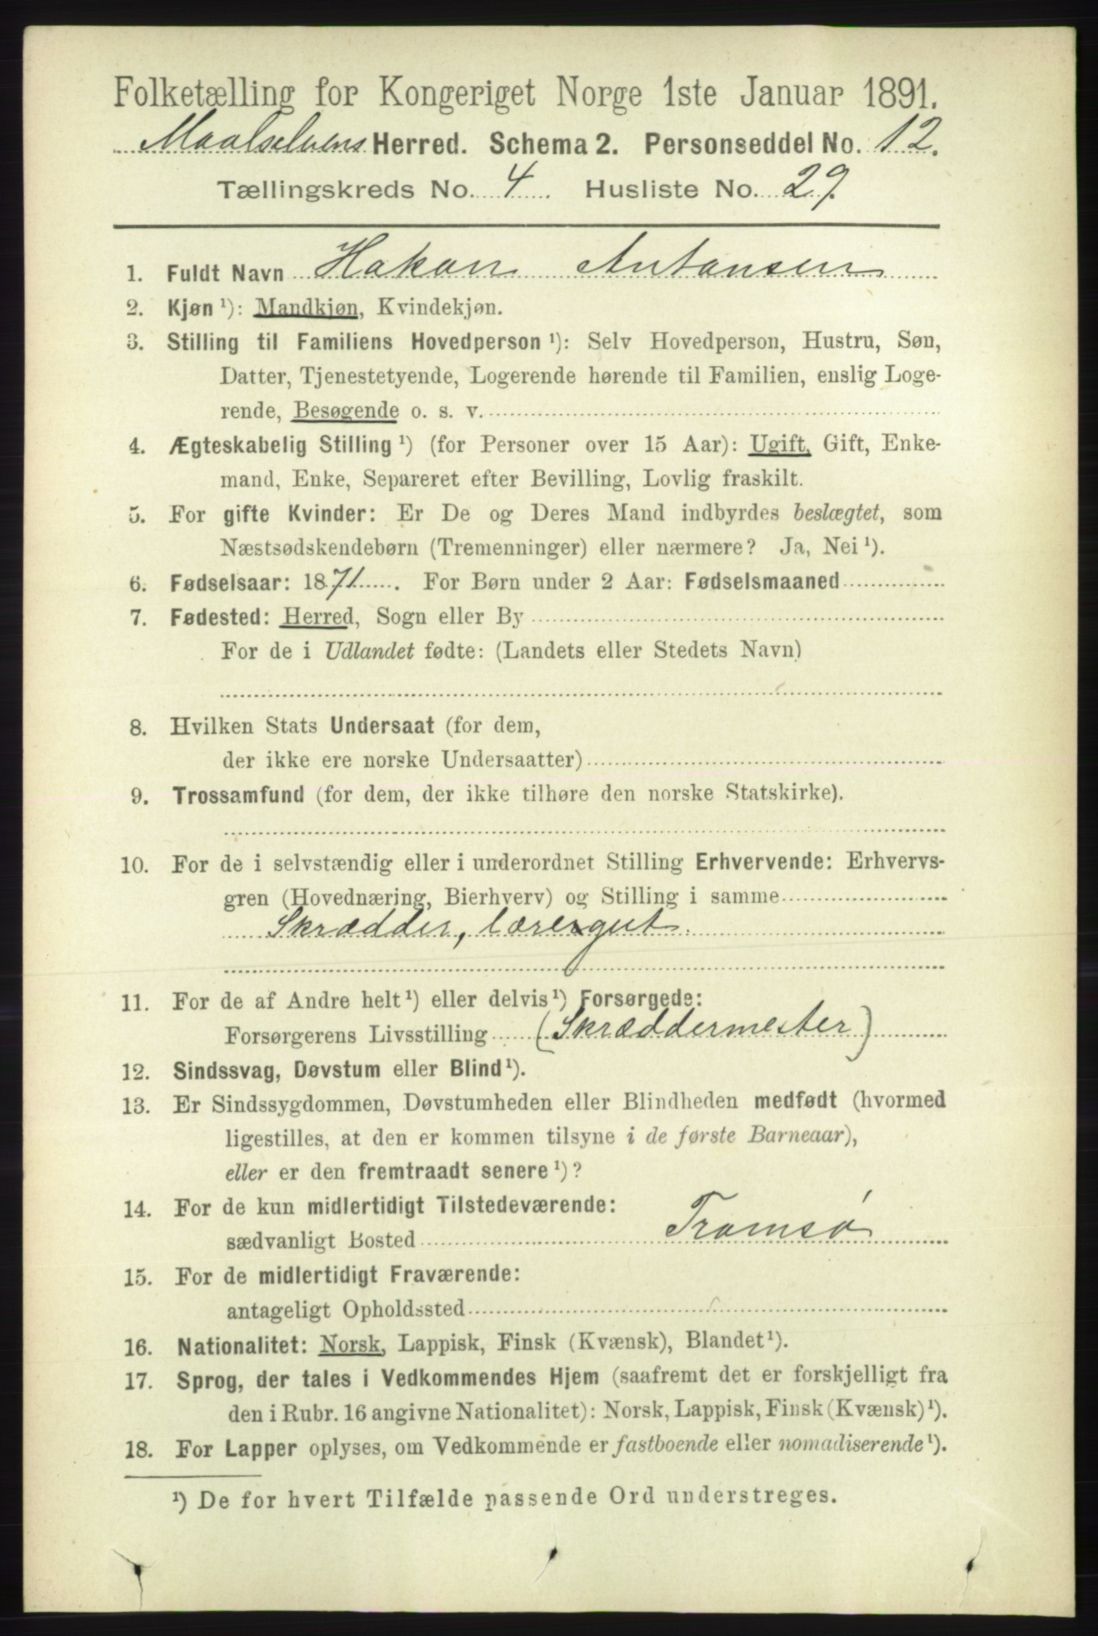 Folketælling for Kongeriget Norge 1ste Januar 1891.
Maalselvens Herred. Schema 2. Personseddel No. 12.
Tællingskreds No. 4 Husliste No. 29.
1. Fuldt Navn Hakon Antonsen
2. Kjøn ¹): Mandkjøn, Kvindekjøn.
3. Stilling til Familiens Hovedperson ¹): Selv Hovedperson, Hustru, Søn,
Datter, Tjenestetyende, Logerende hørende til Familien, enslig Loge-
rende, Besøgende o. s. v.
4. Ægteskabelig Stilling ¹) (for Personer over 15 Aar): Ugift, Gift, Enke-
mand, Enke, Separeret efter Bevilling, Lovlig fraskilt.
5. For gifte Kvinder: Er De og Deres Mand indbyrdes beslægtet, som
Næstsødskendebørn (Tremenninger) eller nærmere? Ja, Nei ¹).
6. Fødselsaar: 1871. For Børn under 2 Aar: Fødselsmaaned
7. Fødested: Herred, Sogn eller By
For de i Udlandet fødte: (Landets eller Stedets Navn)
8. Hvilken Stats Undersaat (for dem,
der ikke ere norske Undersaatter)
9. Trossamfund (for dem, der ikke tilhøre den norske Statskirke).
10. For de i selvstændig eller i underordnet Stilling Erhvervende: Erhvervs-
gren (Hovednæring, Bierhverv) og Stilling i samme
Skrædder, læregut.
11. For de af Andre helt ¹) eller delvis ¹) Forsørgede:
Forsørgerens Livsstilling (Skræddermester)
12. Sindssvag, Døvstum eller Blind ¹).
13. Er Sindssygdommen, Døvstumheden eller Blindheden medfødt (hvormed
ligestilles, at den er kommen tilsyne i de første Barneaar),
eller er den fremtraadt senere ¹)?
14. For de kun midlertidigt Tilstedeværende:
sædvanligt Bosted Tromsø
15. For de midlertidigt Fraværende:
antageligt Opholdssted
16. Nationalitet: Norsk, Lappisk, Finsk (Kvænsk), Blandet ¹).
17. Sprog, der tales i Vedkommendes Hjem (saafremt det er forskjelligt fra
den i Rubr. 16 angivne Nationalitet): Norsk, Lappisk, Finsk (Kvænsk) ¹).
18. For Lapper oplyses, om Vedkommende er fastboende eller nomadiserende ¹).
¹) De for hvert Tilfælde passende Ord understreges.